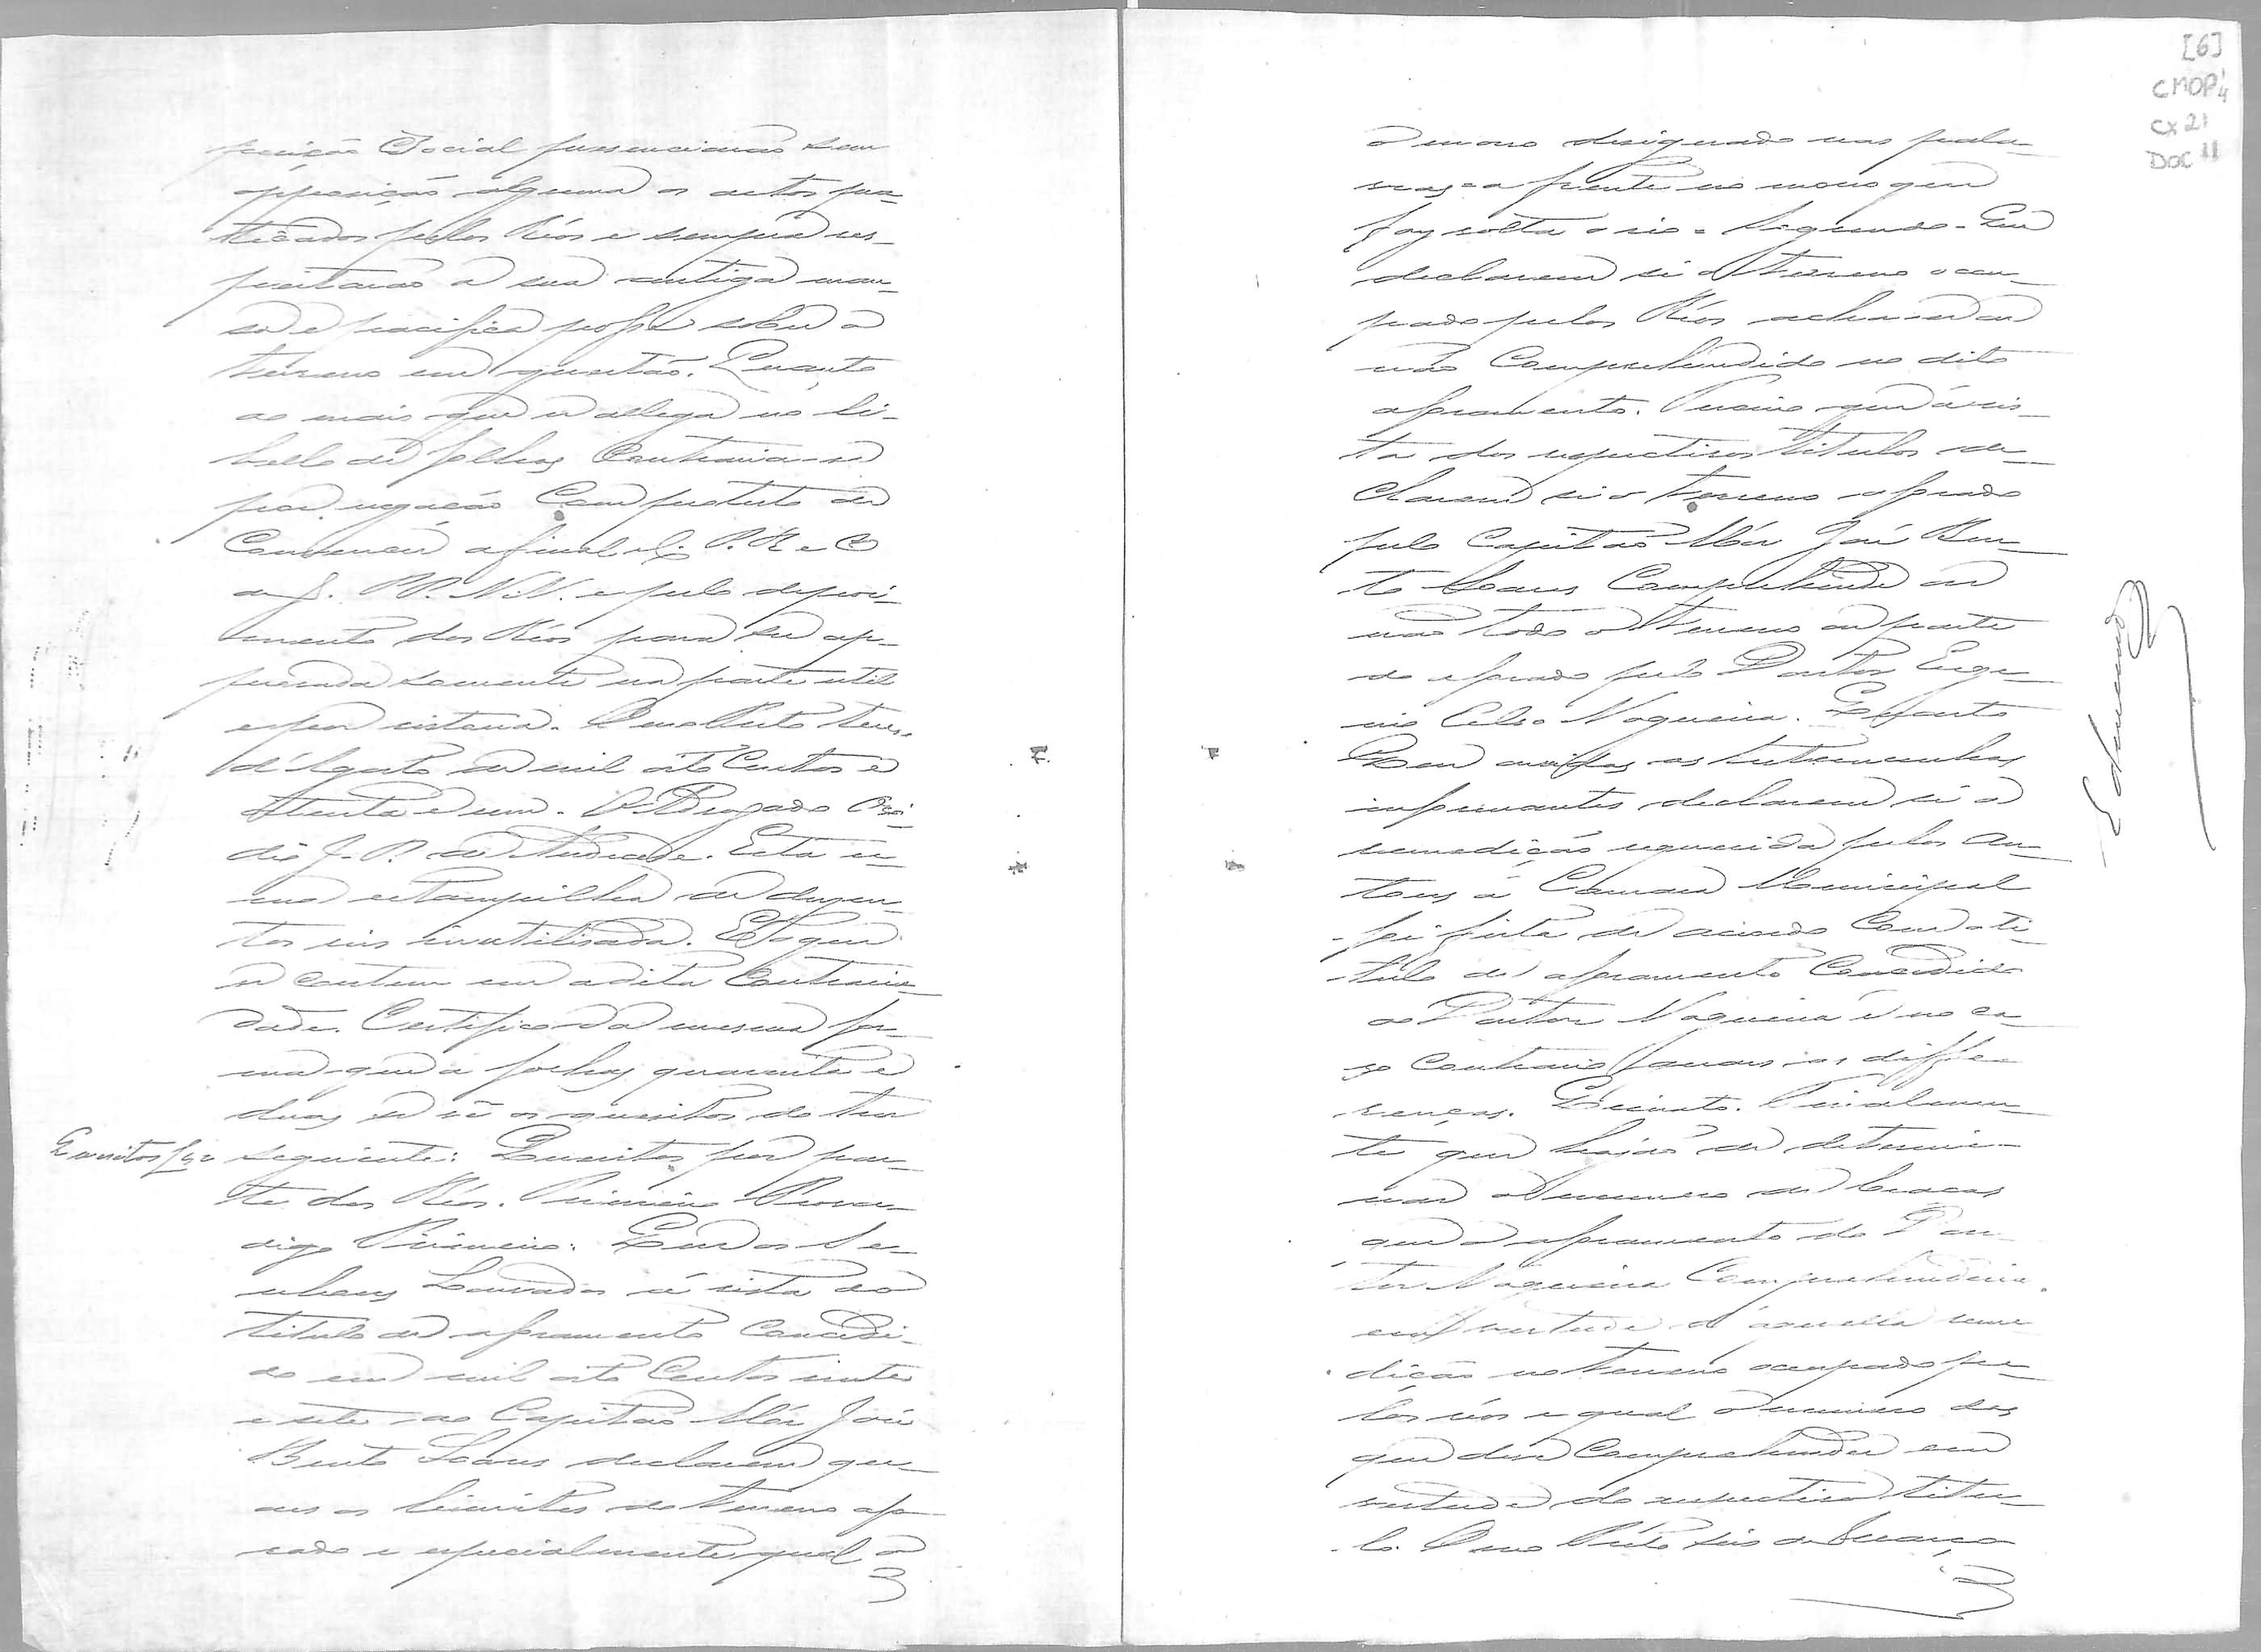 posição Social presenciarão sem
opposição alguma os actos pra-
ticados pelos Réos e sempre res-
peitarão a sua antiga man-
sa e pacifica posse sobre o
terreno em questão. Quanto
ao mais que se allega no li-
bello de folhas Contraria-se
por negação Com protesto de
Convencer afinal
P. P. N. N. e pelo depoi-
mento dos Réos para ser ap-
provada somente na parte util
e por vistoria. Ouro Preto tres
d'Agosto de mil oito Centos e
oitenta e um. O Advogado
J. P. de Andrade. Está
uma estampilha de duzen-
tos reis inutilisada. E o que
se contem em a dita Contrarie-
dade. Certifico da mesma for-
ma que a folhas quarenta e
duas se vê os quesitos do teor
Quesitos f 42 seguinte: Quesitos por par-
te dos Réos. Primeiro
digo Primeiro: Que os Se-
nhores Louvados á vista do
titulo de aforamento Concedi-
do em mil oito Centos vinte
e sete ao Capitão Mór José
Bento Soares declarem qua-
es os limites do terreno afo-
rado e especialmente qual o
[6]
CMOP
CX 21
DOC 11
o morro designado nas pala-
vras = a frente no morro que
faz volta o rio = Segundo. Que
declarem si o terreno occu-
pado pelos Réos acha-se ou
não Comprehendido no dito
aforamento. Terceiro que á vis-
ta dos respectivos titulos de-
clarem si o terreno aforado
pelo Capitão Mór José Ben-
to Soares Comprehende ou
não todo o terreno ou parte
do aforado pelo Doutor Euge-
nio Celso Nogueira. Quarto
Que ouvidas as testemunhas
informantes declarem si a
remedição requerida pelos Au-
tores á Camara Municipal
foi feita de acordo Com o ti-
tulo de aforamento Concedido
ao Doutor Nogueira e no ca-
so Contrario as diffe-
renças. Quinto. Finalmen-
te que hajão de determi-
nar o numero de braças
que o aforamento do Dou-
tor Nogueira Comprehenderia
em virtude d'aquella reme-
dição no terreno occupado pe-
los réos e qual o numero das
que deve Comprehender em
virtude do respectivo titu-
lo. Ouro Preto seis de Março
Edmundo